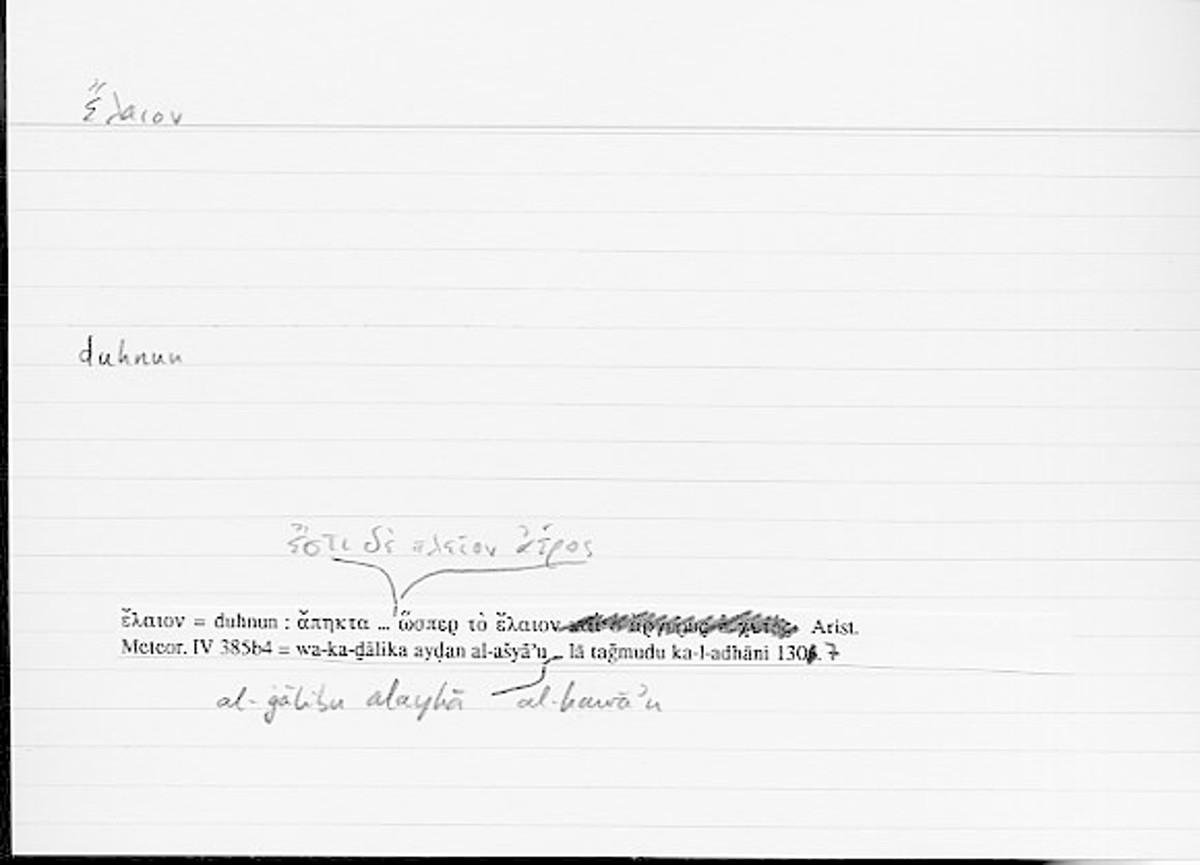 ἔλαιον
duhnun
ἔστι δὲ πλεῖον ἀέρος
ἔλαιον = duhnun : ἄπηκτα ... ὥσπερ τὸ ἔλαιον Arist.
Meteor. IV 385b4 = wa-ka-ḏālika ayḍan al-ašyāʾu lā taǧmudu ka-l-adhāni 130, 7
al-ġālibu alayhā al-hawāʾu